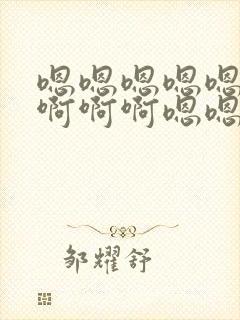 嗯嗯嗯嗯嗯
啊啊啊嗯嗯
邹耀舒